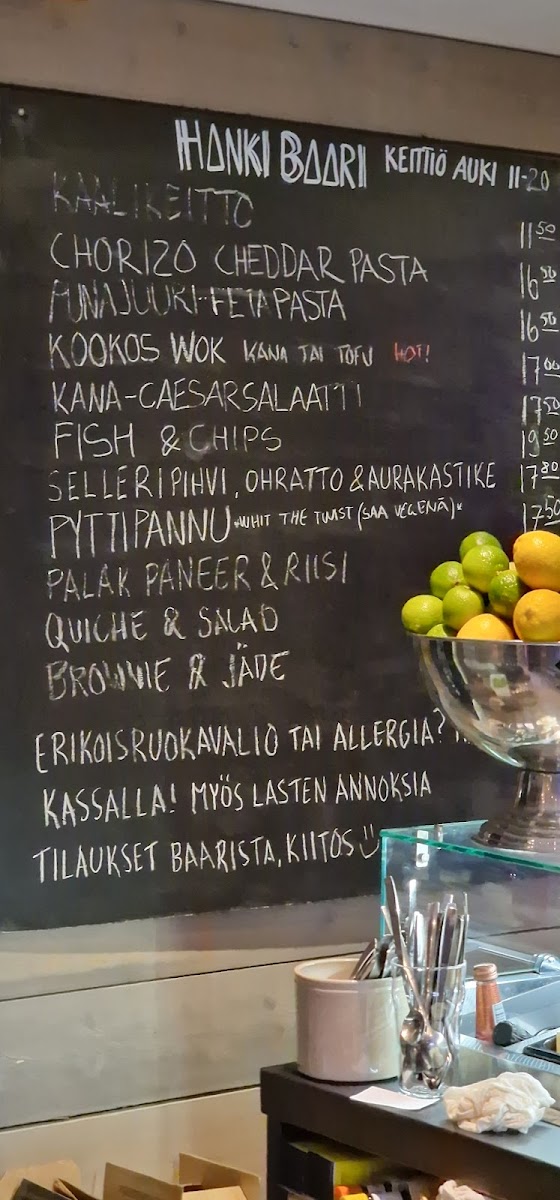 HANKI BAARI KEITTIÖ AUKI 11-20
KAALIKEITTO 11 50
CHORIZO CHEDDAR PASTA 16 50
PUNAJUURI-FETAPASTA 16 50
KOOKOS WOK KANA TAI TOFU HOT! 17 00
KANA-CAESARSALAATTI 17 50
FISH & CHIPS 19 50
SELLERIPIHVI, OHRATTO & AURAKASTIKE 17 80
PYTTIPANNU *WHIT THE TWIST (SAA VEGENÄ)* 17 50
PALAK PANEER & RIISI
QUICHE & SALAD
BROWNIE & JÄDE
ERIKOISRUOKAVALIO TAI ALLERGIA?
KASSALLA! MYÖS LASTEN ANNOKSIA
TILAUKSET BAARISTA, KIITOS